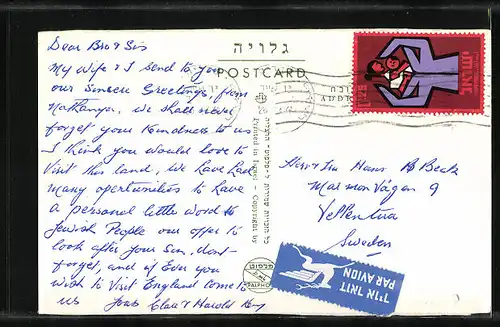 Dear Bro & Sis
My Wife & I send to you
our Sincere Greetings from
Nathanya, we shall never
forget your Kindness to us
I think you would love to
Visit this land, we have had
many opertunities to have
a personal little word to
Jewish People our offer to
look after your Son, dont
forget, and if Ever you
wish to Visit England come to
us Yours Clara & Harold
גלויה
POSTCARD
Printed in Israel - Copyright by
כל הזכויות שמורות
פלפוט
PALPHOT
Herr & Fru Hans Beck
Vägen 9
Vettentuna
Sweden
דואר אויר
PAR AVION